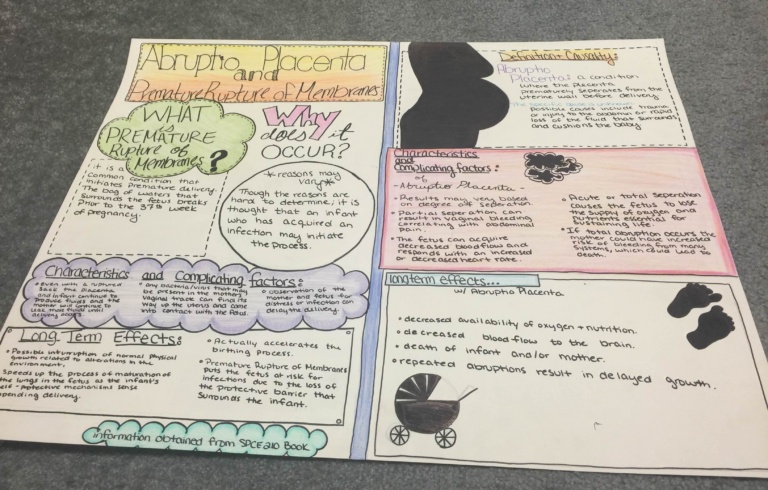 Abruptio Placenta
and
Premature Rupture of Membranes
WHAT
is
PREMATURE
Rupture of
Membranes?
It is a
Common condition that
initiates premature delivery.
The bag of waters that
surrounds the fetus breaks
Prior to the 37th week
of pregnancy.
Why
does it
OCCUR?
*reasons may
vary*
Though the reasons are
hard to determine, it is
thought that an infant
who has acquired an
infection may initiate
the process.
Characteristics and Complicating factors:
• even with a ruptured
sack the placenta
and infant continue to
produce fluids and the
mother will continue to
leak fluids until
delivery
• any bacteria/virus that may
be present in the mother's
vaginal track can find its
way up the uterus and come
into contact with the fetus.
• observation of the
mother and fetus for
distress or infection can
delay the delivery.
Long Term Effects:
• Possible interruption of normal physical
growth related to alterations in the
environment.
Speeds up the process of maturation of
the lungs in the fetus as the infant's
self-protective mechanisms sense
pending delivery.
• Actually accelerates the
birthing process.
• Premature Rupture of Membranes
puts the fetus at risk for
infections due to the loss of
the protective barrier that
surrounds the infant.
information obtained from SPCE210 Book
Definition + Causality:
Abruptio
Placenta: a condition
where the placenta
prematurely seperates from the
uterine wall before delivery.
The specific cause is unknown.
Possible causes include trauma
or injury to the abdomen or rapid
loss of the fluid that surrounds
and cushions the baby
Characteristics
and
Complicating factors:
of
- Abruptio Placenta -
• Results may vary based
on degree of seperation.
• Partial seperation can
result in vaginal bleeding
correlating with abdominal
pain.
• The fetus can acquire
decreased blood flow and
responds with an increased
or decreased heart rate.
• Acute or total seperation
causes the fetus to lose
the supply of oxygen and
nutrients essential for
sustaining life.
• If total abruption occurs the
mother could have increased
risk of bleeding from many
systems, which could lead to
death.
longterm effects...
w/ Abruptio Placenta
• decreased availability of oxygen + nutrition.
• decreased blood flow to the brain.
• death of infant and/or mother.
• repeated abruptions result in delayed growth.